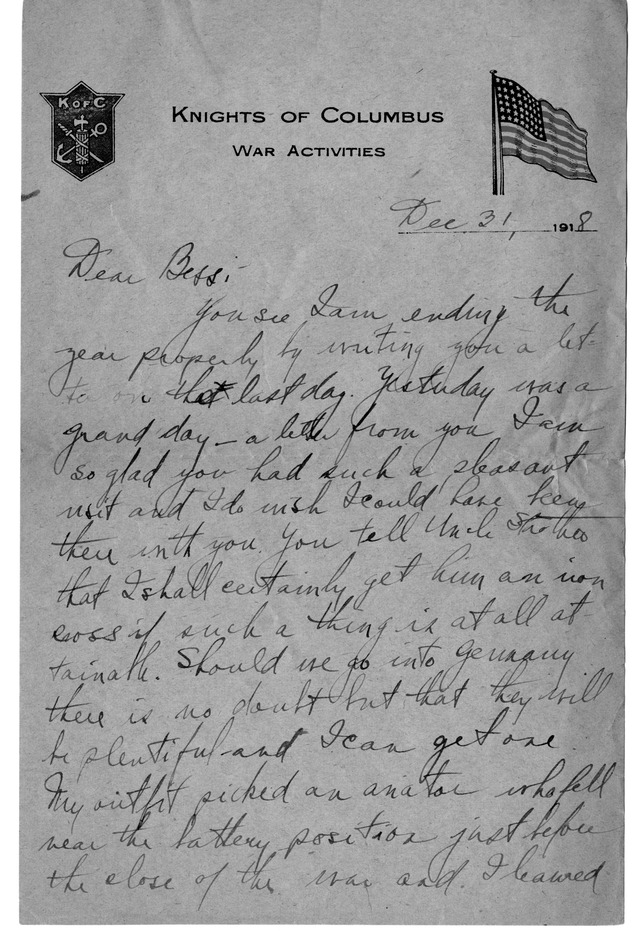 K OF C
KNIGHTS OF COLUMBUS
WAR ACTIVITIES
Dec 31, 1918
Dear Bess:-
You see I am ending the
year properly by writing you a let-
ter on that last day. Yesterday was a
grand day - a letter from you I am
so glad you had such a pleasant
visit and I do wish I could have been
there with you. You tell Uncle Strother
that I shall certainly get him an iron
cross if such a thing is at all at
tainable. Should we go into Germany
there is no doubt but that they will
be plentiful and I can get one.
My outfit picked an aviator who fell
near the battery position just before
the close of the war and I